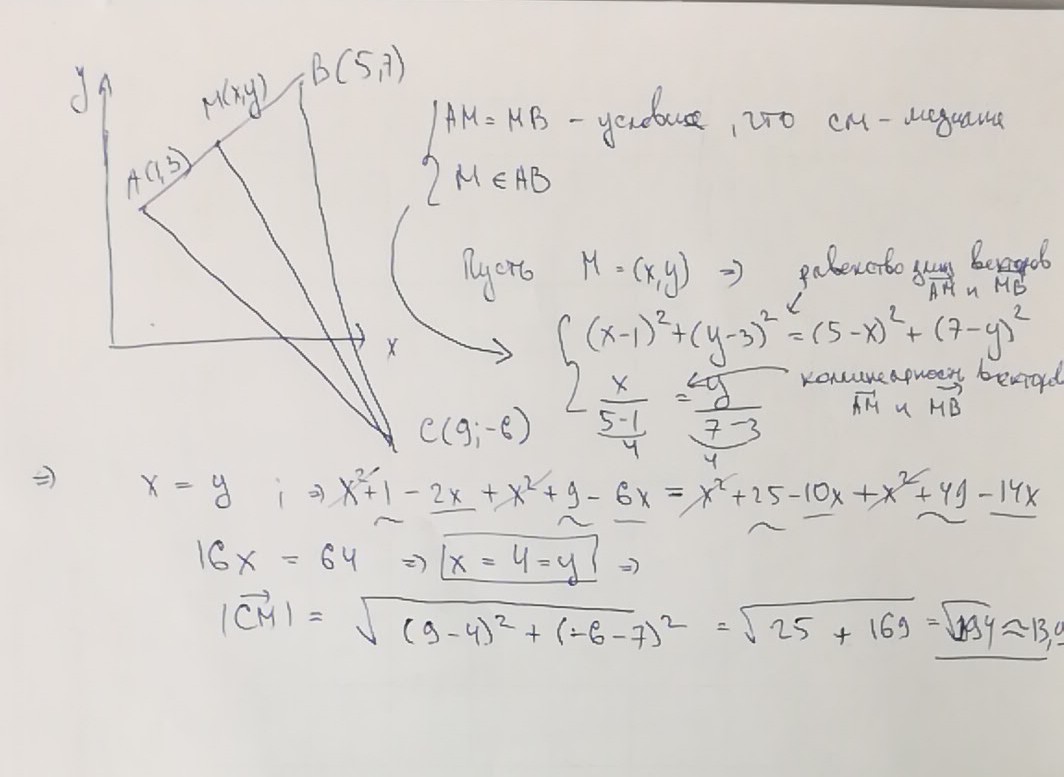 y
M(x,y)
B(5,7)
A(1,3)
AM = MB – условие, что CM – медиана
M ∈ AB
Пусть M = (x,y) ⇒ равенство длин векторов
AM и MB
(x-1)² + (y-3)² = (5-x)² + (7-y)²
x/(5-1) = y/(7-3) коллинеарность векторов
4 4 AM и MB
x
C(9;-6)
⇒ x = y ; ⇒ x² + 1 - 2x + x² + 9 - 6x = x² + 25 - 10x + x² + 49 - 14x
16x = 64 ⇒ x = 4 = y ⇒
|CM| = √((9-4)² + (-6-7)²) = √(25 + 169) = √194 ≈ 13,9